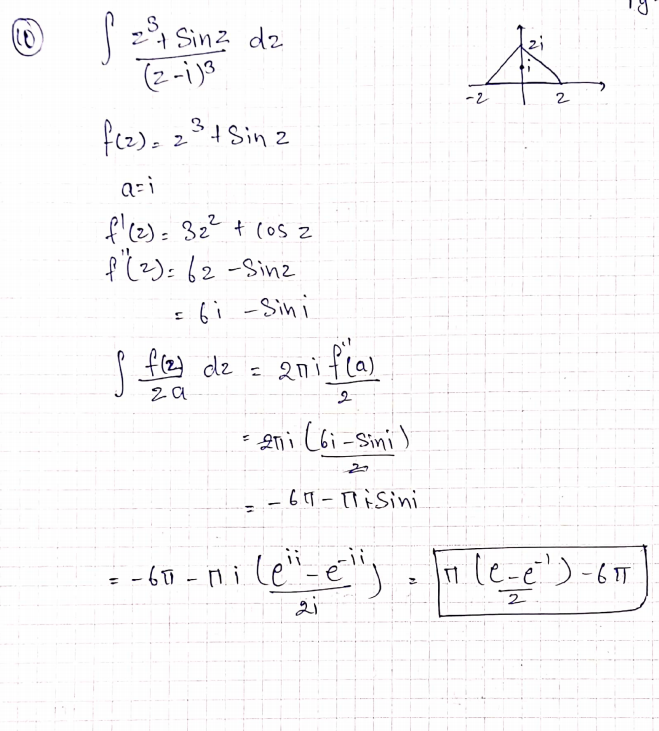 (10) ∫ (z³ + Sin z)/(z-i)³ dz
2i
i
-2 2
f(z) = z³ + Sin z
a=i
f'(z) = 3z² + cos z
f''(z) = 6z - Sin z
= 6i - Sin i
∫ f(z)/za dz = 2πi f''(a)/2
= 2πi (6i - Sin i)/2
= -6π - πi Sin i
= -6π - πi (e^{ii} - e^{-ii})/2i = π (e - e^{-1})/2 - 6π